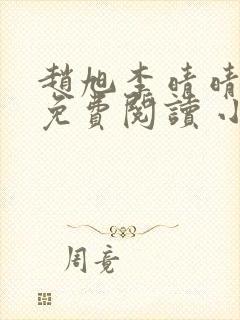 趙旭李晴晴
免費閱讀小
周竟